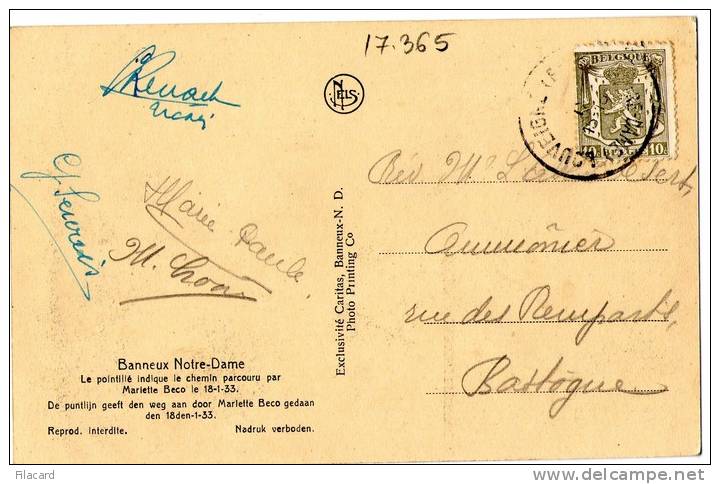 17.365
NELS
BELGIQUE
10c BELGIE 10c
LOUVEIGNÉ
Marie Paule
Rév Mr
Aumônier
rue des Remparts,
Bastogne
Exclusivité Caritas, Banneux-N. D.
Photo Printing Co
Banneux Notre-Dame
Le pointillé indique le chemin parcouru par
Mariette Beco le 18-1-33.
De puntlijn geeft den weg aan door Mariette Beco gedaan
den 18den-1-33.
Reprod. interdite. Nadruk verboden.
Filacard
www.delcampe.net